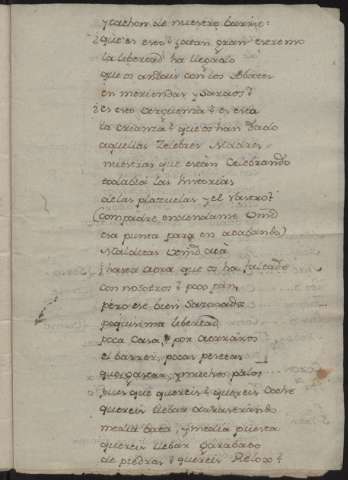 y tachon de nuestro barrio:
¿que es esto? ¿a tan gran extremo
la libertad ha llegado
que os andais con los Abates
en meriendas y saraos?
¿es esto verguenza? es esta
la crianza? que os han dado
aquellas zelebres Madres
nuestras que estan celebrando
todabia las historias
de las plazuelas y el rastro?
(compadre enciendame Vmd
esa punta para en acabando)
Malditas Vmd acá
¿hasta aora que os ha faltado
con nosotros? poco pan,
pero ese bien
poquisima libertad
poca casa, por
el barrer, pocas pesetas
que gastar, y muchos palos
pues que quereis? quereis coche
quereis llebar arrastrando
media bata, y media puesta
quereis llebar
de piedras? quereis Relox?